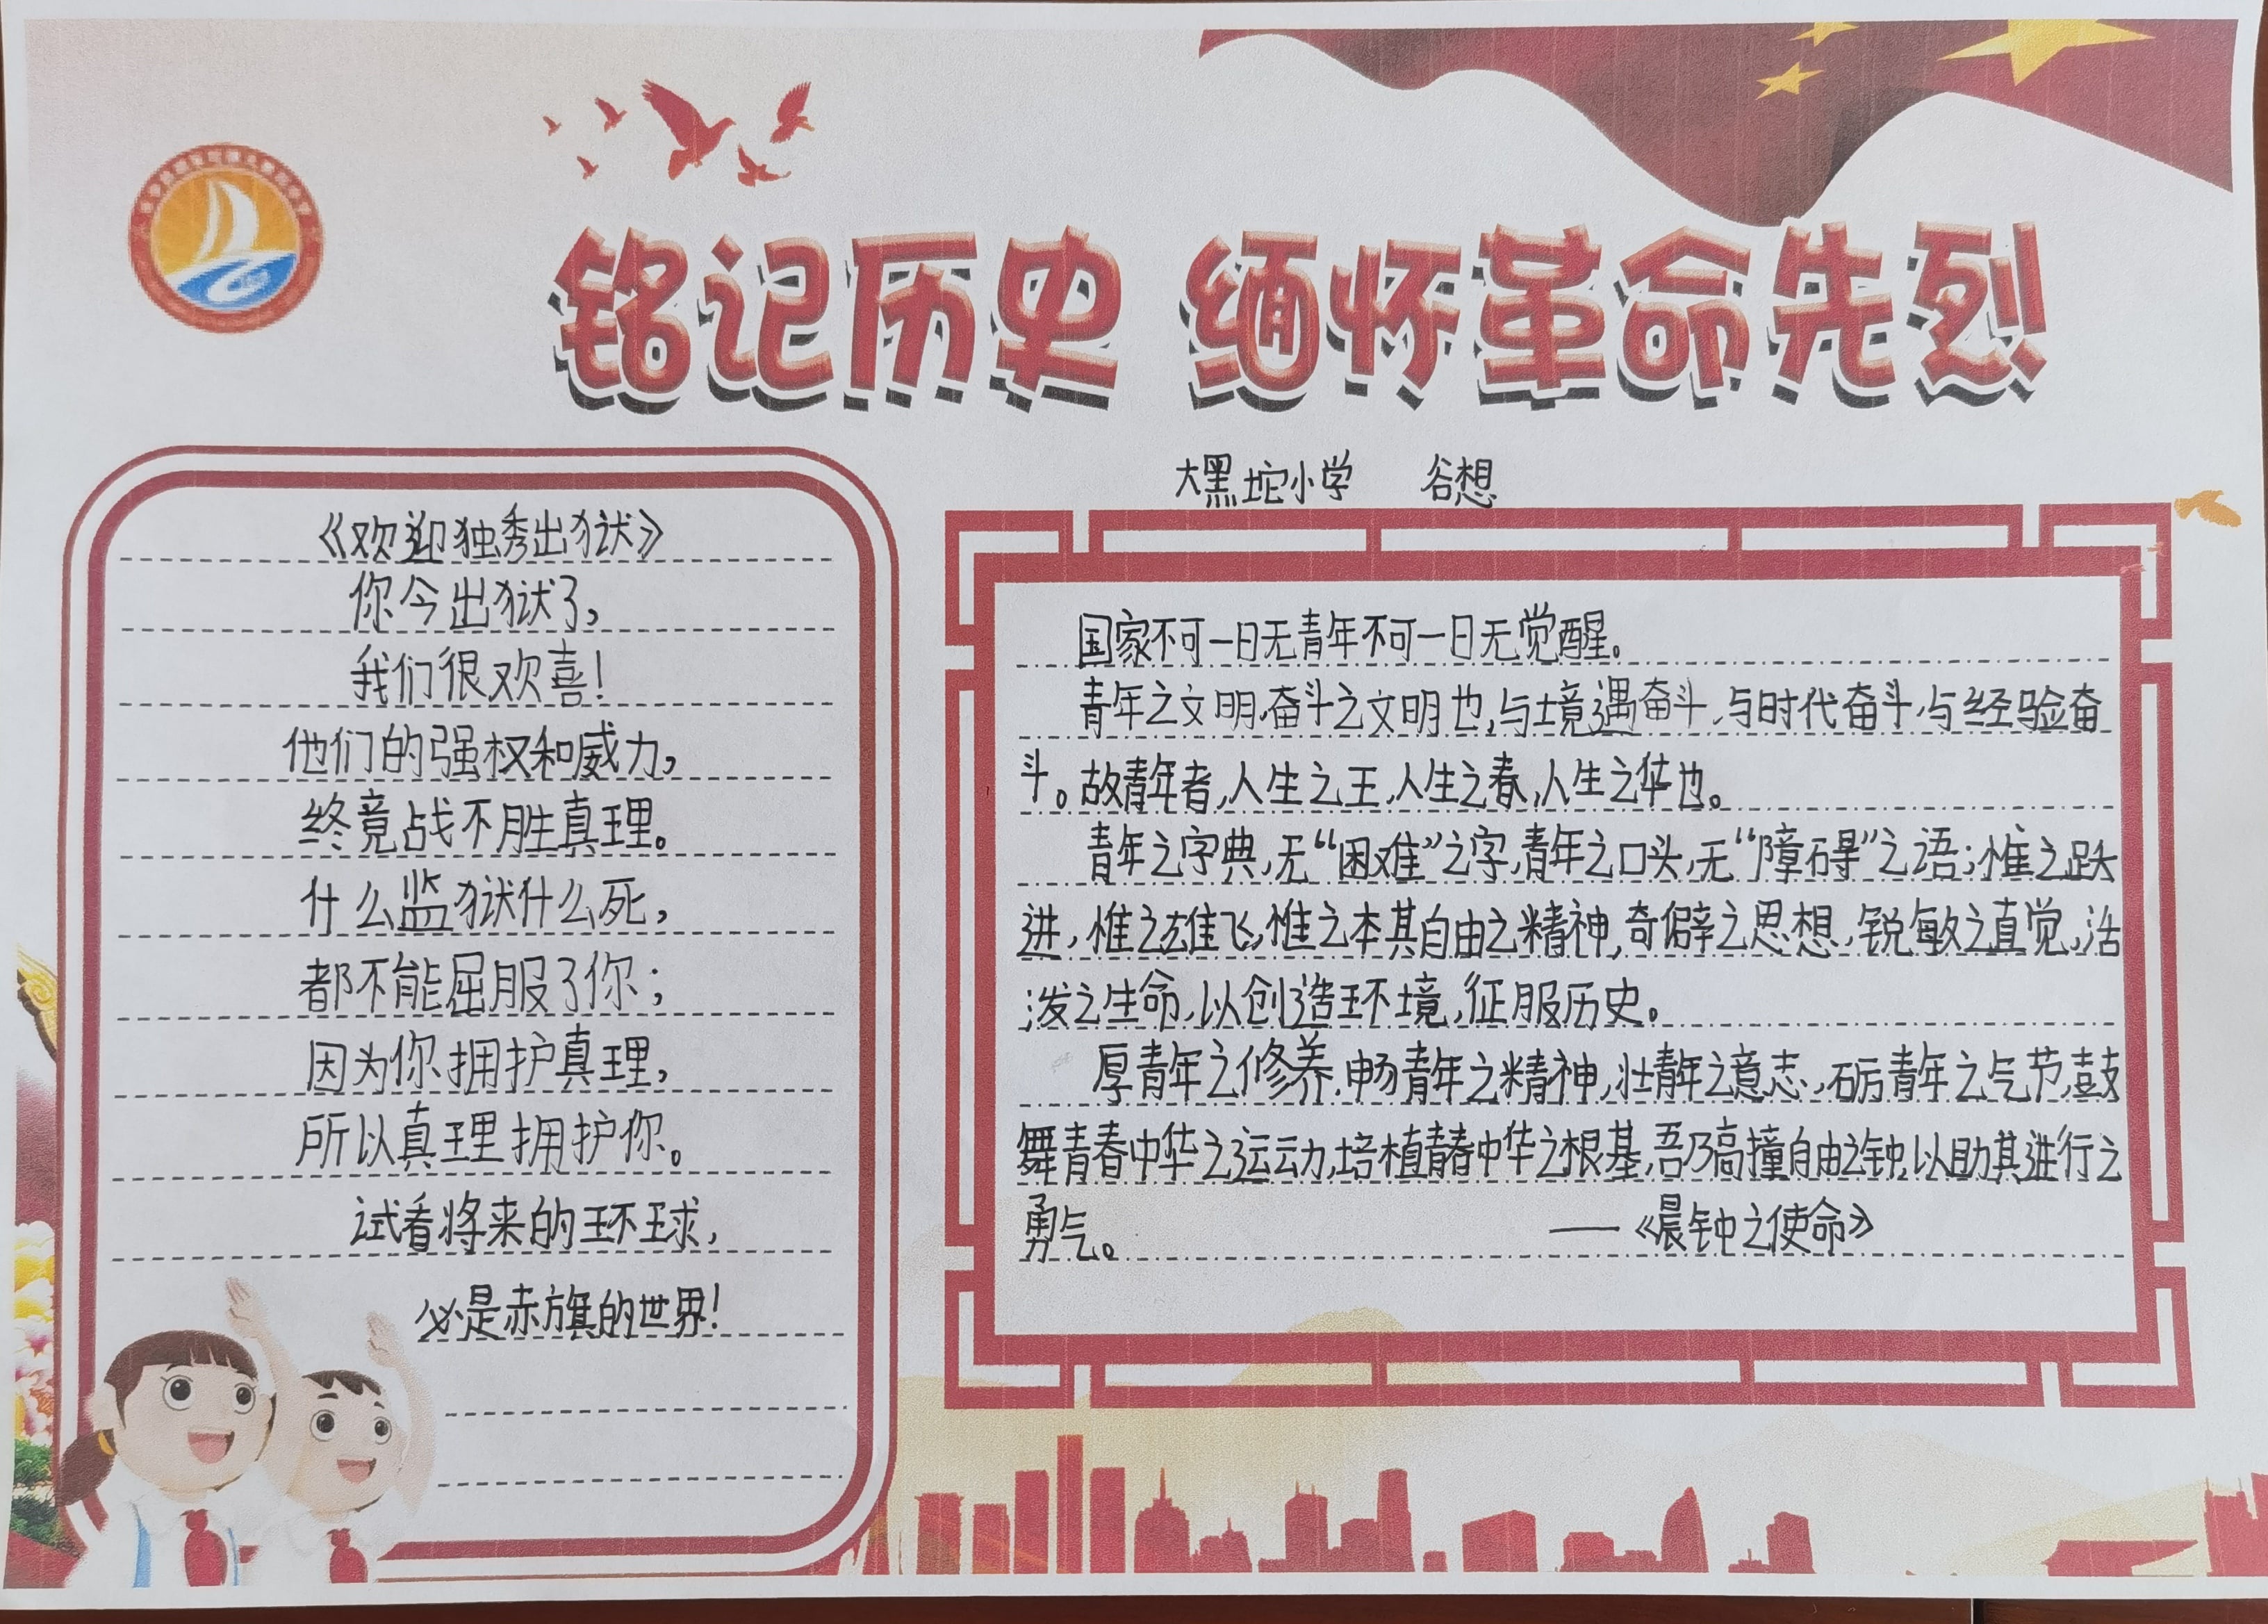 铭记历史 缅怀革命先烈
大黑坨小学 谷想
《欢迎独秀出狱》
你今出狱了,
我们很欢喜!
他们的强权和威力,
终竟战不胜真理。
什么监狱什么死,
都不能屈服了你;
因为你拥护真理,
所以真理拥护你。
试看将来的环球,
必是赤旗的世界!
国家不可一日无青年不可一日无觉醒。
青年之文明,奋斗之文明也,与境遇奋斗,与时代奋斗,与经验奋
斗。故青年者,人生之王,人生之春,人生之华也。
青年之字典,无“困难”之字,青年之口头,无“障碍”之语;惟之跃
进,惟之雄飞,惟之本其自由之精神,奇僻之思想,锐敏之直觉,活
泼之生命,以创造环境,征服历史。
厚青年之修养,畅青年之精神,壮青年之意志,砺青年之气节,鼓
舞青春中华之运动,培植青春中华之根基,吾乃高撞自由之钟,以助其进行之
勇气。 ——《晨钟之使命》